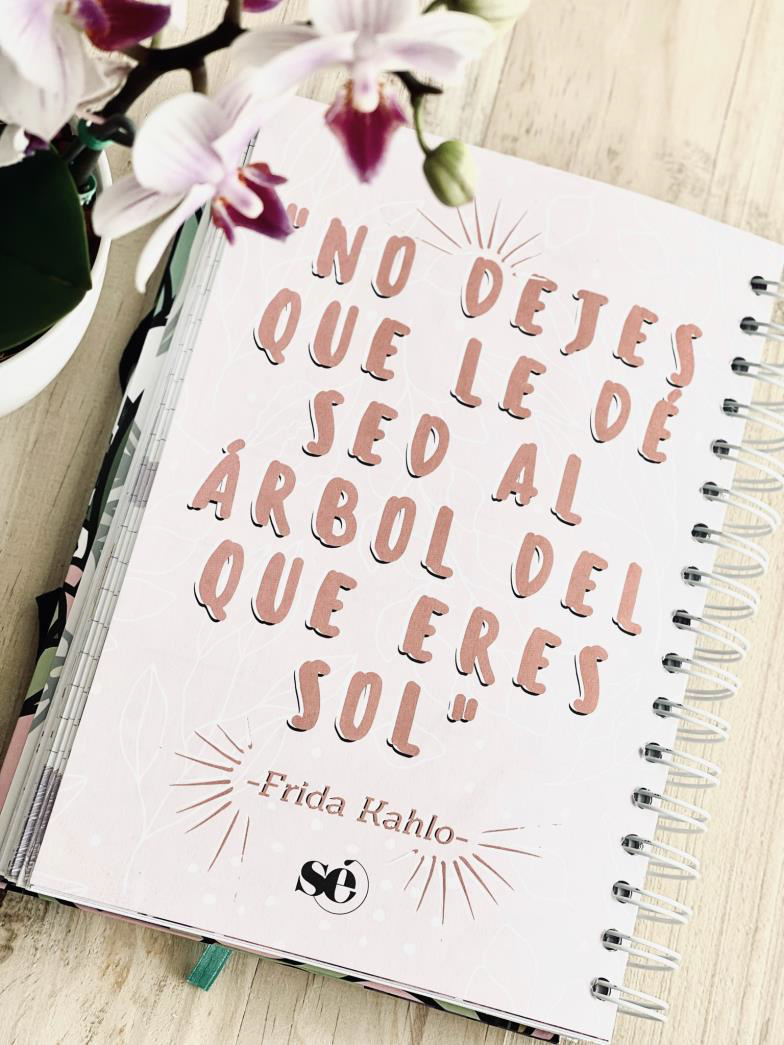 "NO DEJES
QUE LE DÉ
SED AL
ÁRBOL DEL
QUE ERES
SOL"
-Frida Kahlo-
sé